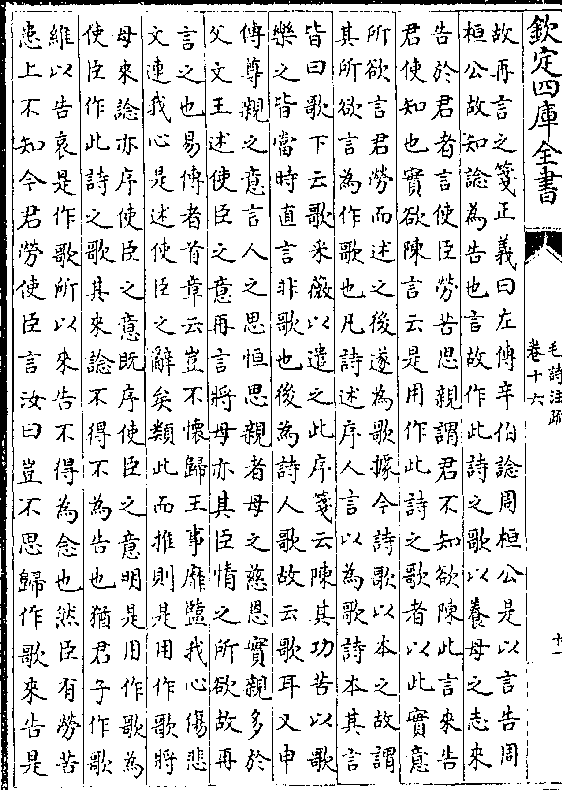 欽定四庫全書
毛詩注疏
卷十六
十一
故再言之箋正義曰左傳辛伯諗周桓公是以言告周
桓公故知諗為告也言故作此詩之歌以養母之志來
告於君者言使臣勞苦思親謂君不知欲陳此言來告
君使知也實欲陳言云是用作此詩之歌者以此實意
所欲言君勞而述之後遂為歌據今詩歌以本之故謂
其所欲言為作歌也凡詩述序人言以為歌詩本其言
皆曰歌下云歌采薇以遣之此序箋云陳其功苦以歌
樂之皆當時直言非歌也後為詩人歌故云歌耳又申
傳尊親之意言人之思恒思親者母之慈恩實親多於
父文王述使臣之意再言將母亦其臣情之所欲故再
言之也易傳者首章云豈不懷歸王事靡盬我心傷悲
文連我心是述使臣之辭矣類此而推則是用作歌將
母來諗亦序使臣之意既序使臣之意明是用作歌為
使臣作此詩之歌其來諗不得不為告也猶君子作歌
維以告哀是作歌所以來告不得為念也然臣有勞苦
患上不知今君勞使臣言汝曰豈不思歸作歌來告是